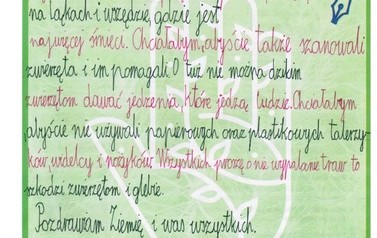 na łąkach i wszędzie, gdzie jest
najwięcej śmieci. Chciałabym, abyście także szanowali
zwierzęta i im pomagali. O tuż nie można dzikim
zwierzętom dawać jedzenia, które jedzą ludzie. Chciałabym
abyście nie używali papierowych oraz plastikowych talerzy
ków, widelcy i nożyków. Wszystkich proszę o nie wypalane traw to
szkodzi zwierzętom i glebie.
Pozdrawiam Ziemię i was wszystkich.